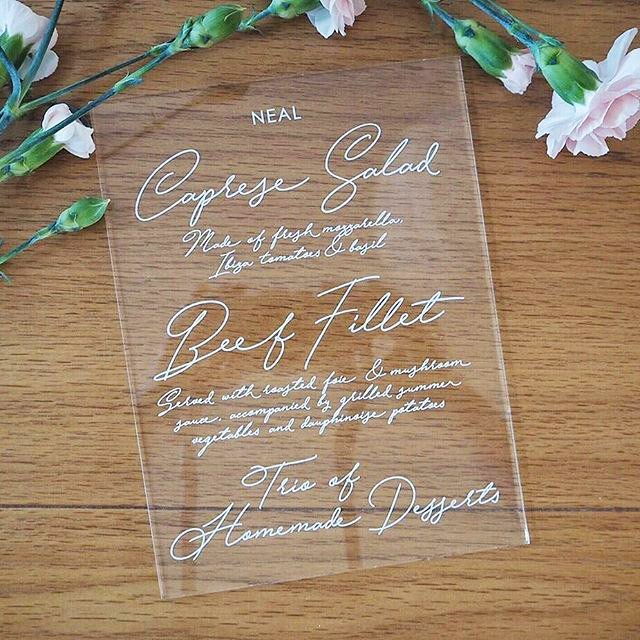 NEAL
Caprese Salad
Made of fresh mozzarella,
Ibiza tomatoes & basil
Beef Fillet
Served with roasted foie & mushroom
sauce, accompanied by grilled summer
vegetables and dauphinoise potatoes
Trio of
Homemade Desserts